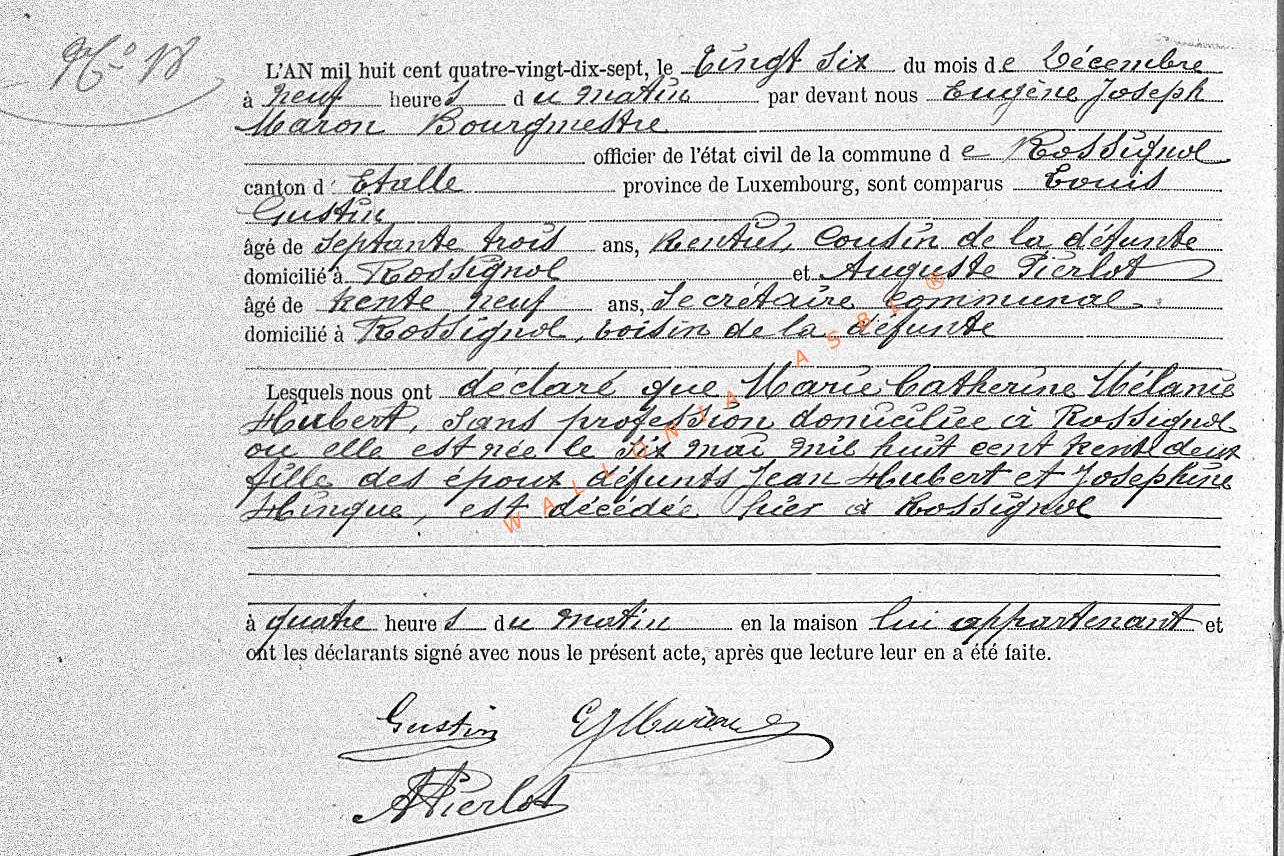 N° 18
L'AN mil huit cent quatre-vingt-dix-sept, le Vingt Six du mois de Décembre
à neuf heures du matin par devant nous Eugène Joseph
Maron Bourgmestre
officier de l'état civil de la commune de Rossignol
canton d'Etalle province de Luxembourg, sont comparus Louis
Gustin
âgé de septante trois ans, Rentier, Cousin de la défunte
domicilié à Rossignol et Auguste Pierlot
âgé de trente neuf ans, Secrétaire communal
domicilié à Rossignol, voisin de la défunte
Lesquels nous ont déclaré que Marie Catherine Mélanie
Hubert, sans profession domiciliée à Rossignol
ou elle est née le six mai mil huit cent trente deux
fille des époux défunts Jean Hubert et Joséphine
Hinque, est décédée hier à Rossignol
à quatre heures du matin en la maison lui appartenant et
ont les déclarants signé avec nous le présent acte, après que lecture leur en a été faite.
Gustin EJMaron
APierlot
WALLONIA ASBL ®